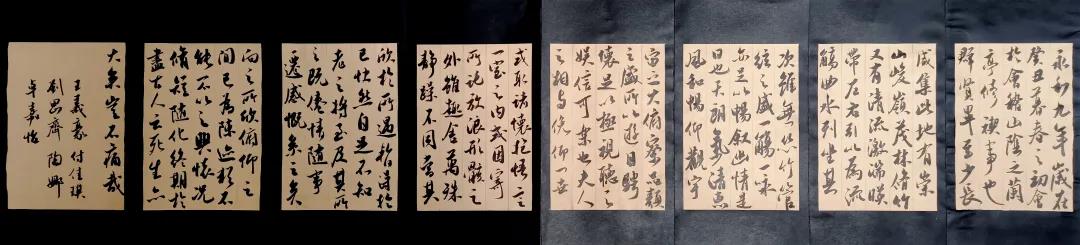 永和九年歲在
癸丑暮春之初會
於會稽山陰之蘭
亭修禊事也
群賢畢至少長
咸集此地有崇
山峻嶺茂林脩竹
又有清流激湍暎
帶左右引以為流
觴曲水列坐其
次雖無絲竹管
弦之盛一觴一詠
亦足以暢敘幽情是
日也天朗氣清惠
風和暢仰觀宇
宙之大俯察品類
之盛所以遊目騁
懷足以極視聽之
娛信可樂也夫人
之相與俛仰一世
或取諸懷抱悟言
一室之內或因寄
所託放浪形骸之
外雖趣舍萬殊
靜躁不同當其
欣於所遇暫得於
己快然自足不知
老之將至及其所
之既倦情隨事
遷感慨係之矣
向之所欣俛仰之
間已為陳迹猶不
能不以之興懷況
脩短隨化終期於
盡古人云死生亦
大矣豈不痛哉
王義豪 付佳琪
劉思齊 陶娜
卓嘉怡